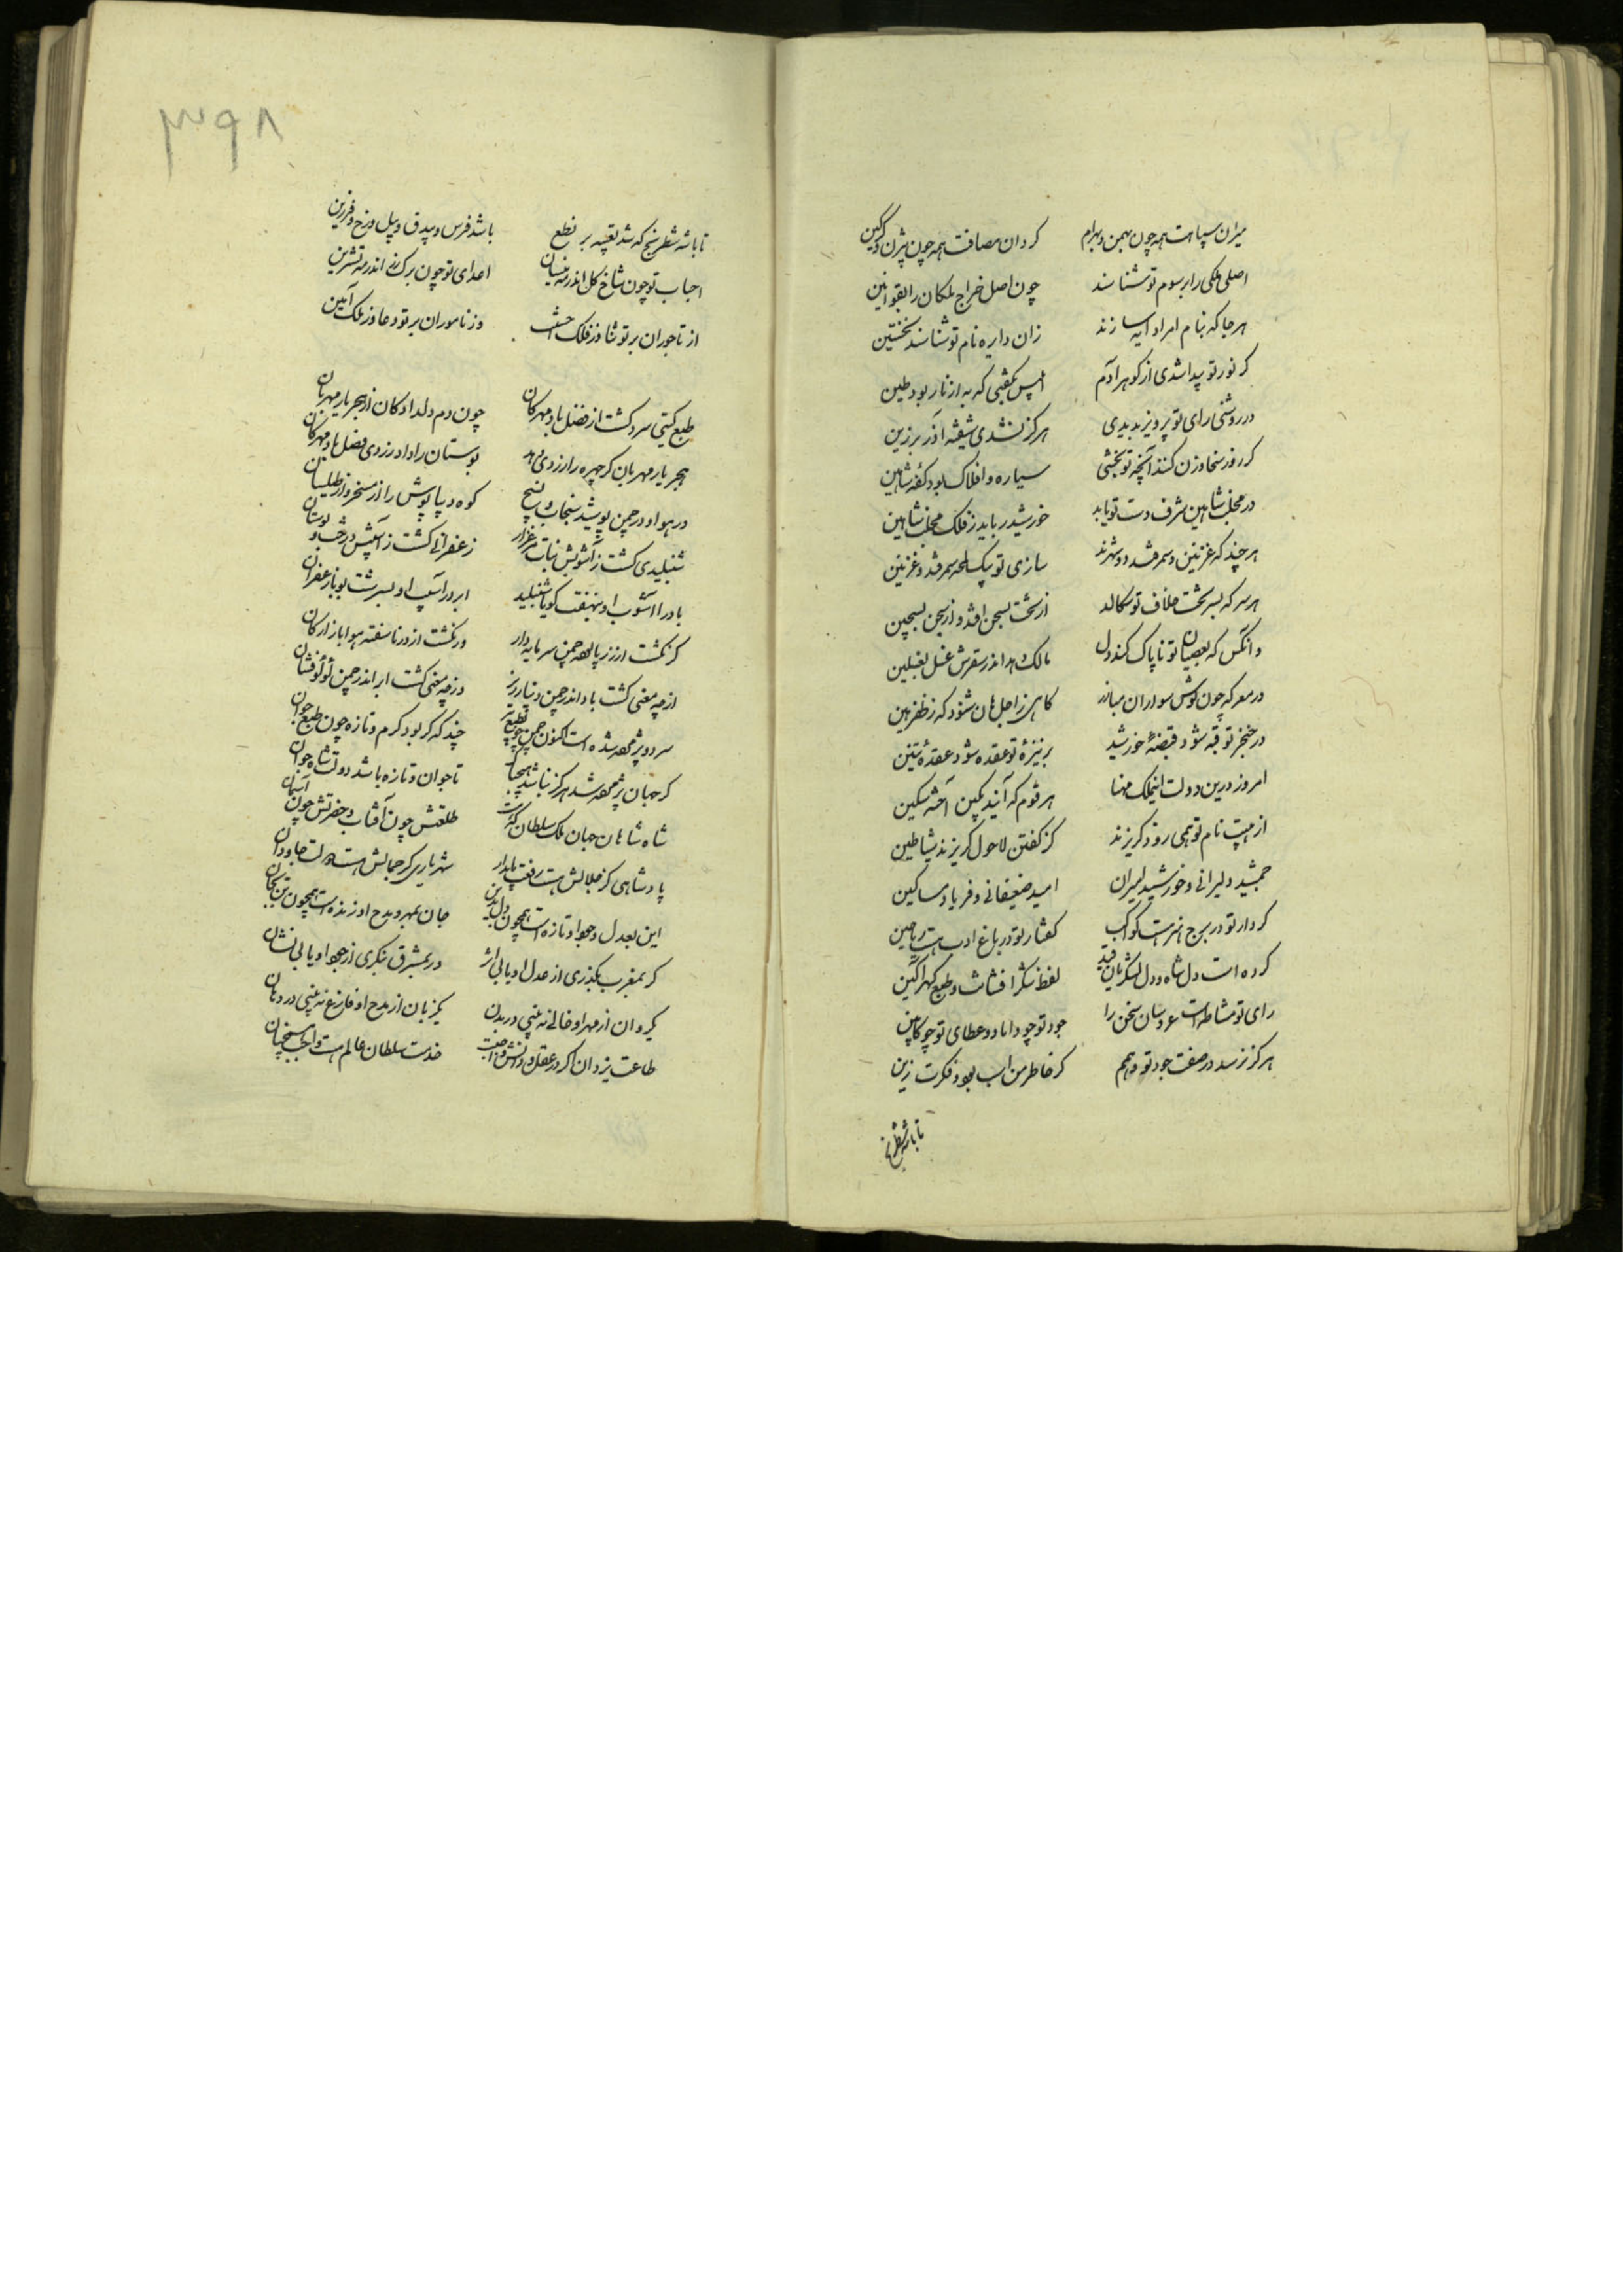 میران سپاهت همه چون بهمن و بهرام کردان مصافت همه چون بیژن و کرکین
اصلی ملکی را برسوم تو شناسند چون اصل خراج ملکان را بقوانین
هر جا که بنام امرا دایره سازند زان دایره نام تو شناسند نخستین
کر نور تو پیدا شدی از کوهر آدم ابلیس نکفتی که به از نار بود طین
در روشنی رای تو پرویز بدیدی هرکز نشدی شیفته آذر برزین
کر روز سخا وزن کنند آنچه تو بخشی سیاره و افلاک بود کفه شاهین
در مخلب شاهین شرف دست تو یابد خورشید رباید ز فلک مخلب شاهین
هر چند که غزنین و سمرقند دو شهرند سازی تو بیک لحظه سمرقند و غزنین
هر سر که بسر تخت خلاف تو سکالد از تخت بسجن افتد و از سجن بسجین
وانکس که بعصیان تو ناپاک کند دل مالک دهد اندر سقرش غسل بغسلین
در معرکه چون کوش سواران مبارز کاهی ز اجل هان شنود که ز ظفر هین
در خنجر تو قبه شود قبضه خورشید بر نیزه تو عقده شود عقده تنین
امروز درین دولت این ملک مهنا هر قوم که آیند بکین آخته سکین
از هیبت نام تو همی زود کریزند کز کفتن لاحول کریزند شیاطین
جمشید دلیرانی و خورشید امیران امید ضعیفانی و فریاد مساکین
کردار تو در برج هنر هست کواکب کفتار تو در باغ ادب هست ریاحین
کرده است دل شاه و دل لشکریان قید لفظ شکر افشانت و طبع کهر آکین
رای تو مشاطه است عروسان سخن را جود تو چو داماد و عطای تو چو کابین
هرکز نرسد در صفت جود تو وهمم کر خاطر من اسب بود فکرت زین
تا باشه شطرنج
۳۹۸
تا باشه شطرنج که شد تعبیه بر نطع باشد فرس و بیدق و پیل و رخ و فرزین
احباب تو چون شاخ کل اندر مه نیسان اعدای تو چون برک رز اندر مه تشرین
از تاجوران بر تو ثنا وز فلک احسنت وز ناموران بر تو دعا وز ملک آمین
طبع کیتی سرد کشت از فضل باد مهرکان چون دم دلدادکان از هجر یار مهربان
هجر یار مهربان کر چهره را زردی دهد بوستان را داد زردی فضل باد مهرکان
در هوا و در چمن پوشید سنجاب و نسیج کوه دیبا پوش را از مسخر و از طیلسان
شنبلیدی کشت ز آشوبش نبات مرغزار زعفرانی کشت ز آسیبش درخت بوستان
باد را آشوب او بنهفت کویا شنبلید ابر در آسیب او بسرشت بویا زعفران
کر نکشت از زر پالوده چمن سرمایه دار ور نکشت از در ناسفته هوا بازارکان
از چه معنی کشت باد اندر چمن دینار ریز وز چه معنی کشت ابر اندر چمن لؤلؤفشان
سرد و پژمرده شده است اکنون چمن چون طبع پیر چند که کر بود کرم و تازه چون طبع جوان
کر جهان پژمرده شد هرکز نباشد هیچ باک تا جوان و تازه باشد دولت شاه جوان
شاه شاهان جهان ملک سلطان که هست طلعتش چون آفتاب و حضرتش چون آسمان
پادشاهی کز جلالش هست رفعت پایدار شهریاری کز جمالش هست دولت جاودان
این بعدل و جود او تازه است همچون دل بدین جان بمهر و مدح او زنده است همچون تن بجان
کر بمغرب بکذری از عدل او یابی اثر ور بمشرق بنکری از جود او یابی نشان
یک روان از مهر او خالی نه بینی در بدن یک زبان از مدح او فارغ نه بینی در دهان
طاعت یزدان اکر در عقل و دانش واجبست خدمت سلطان عالم هست واجب همچنان